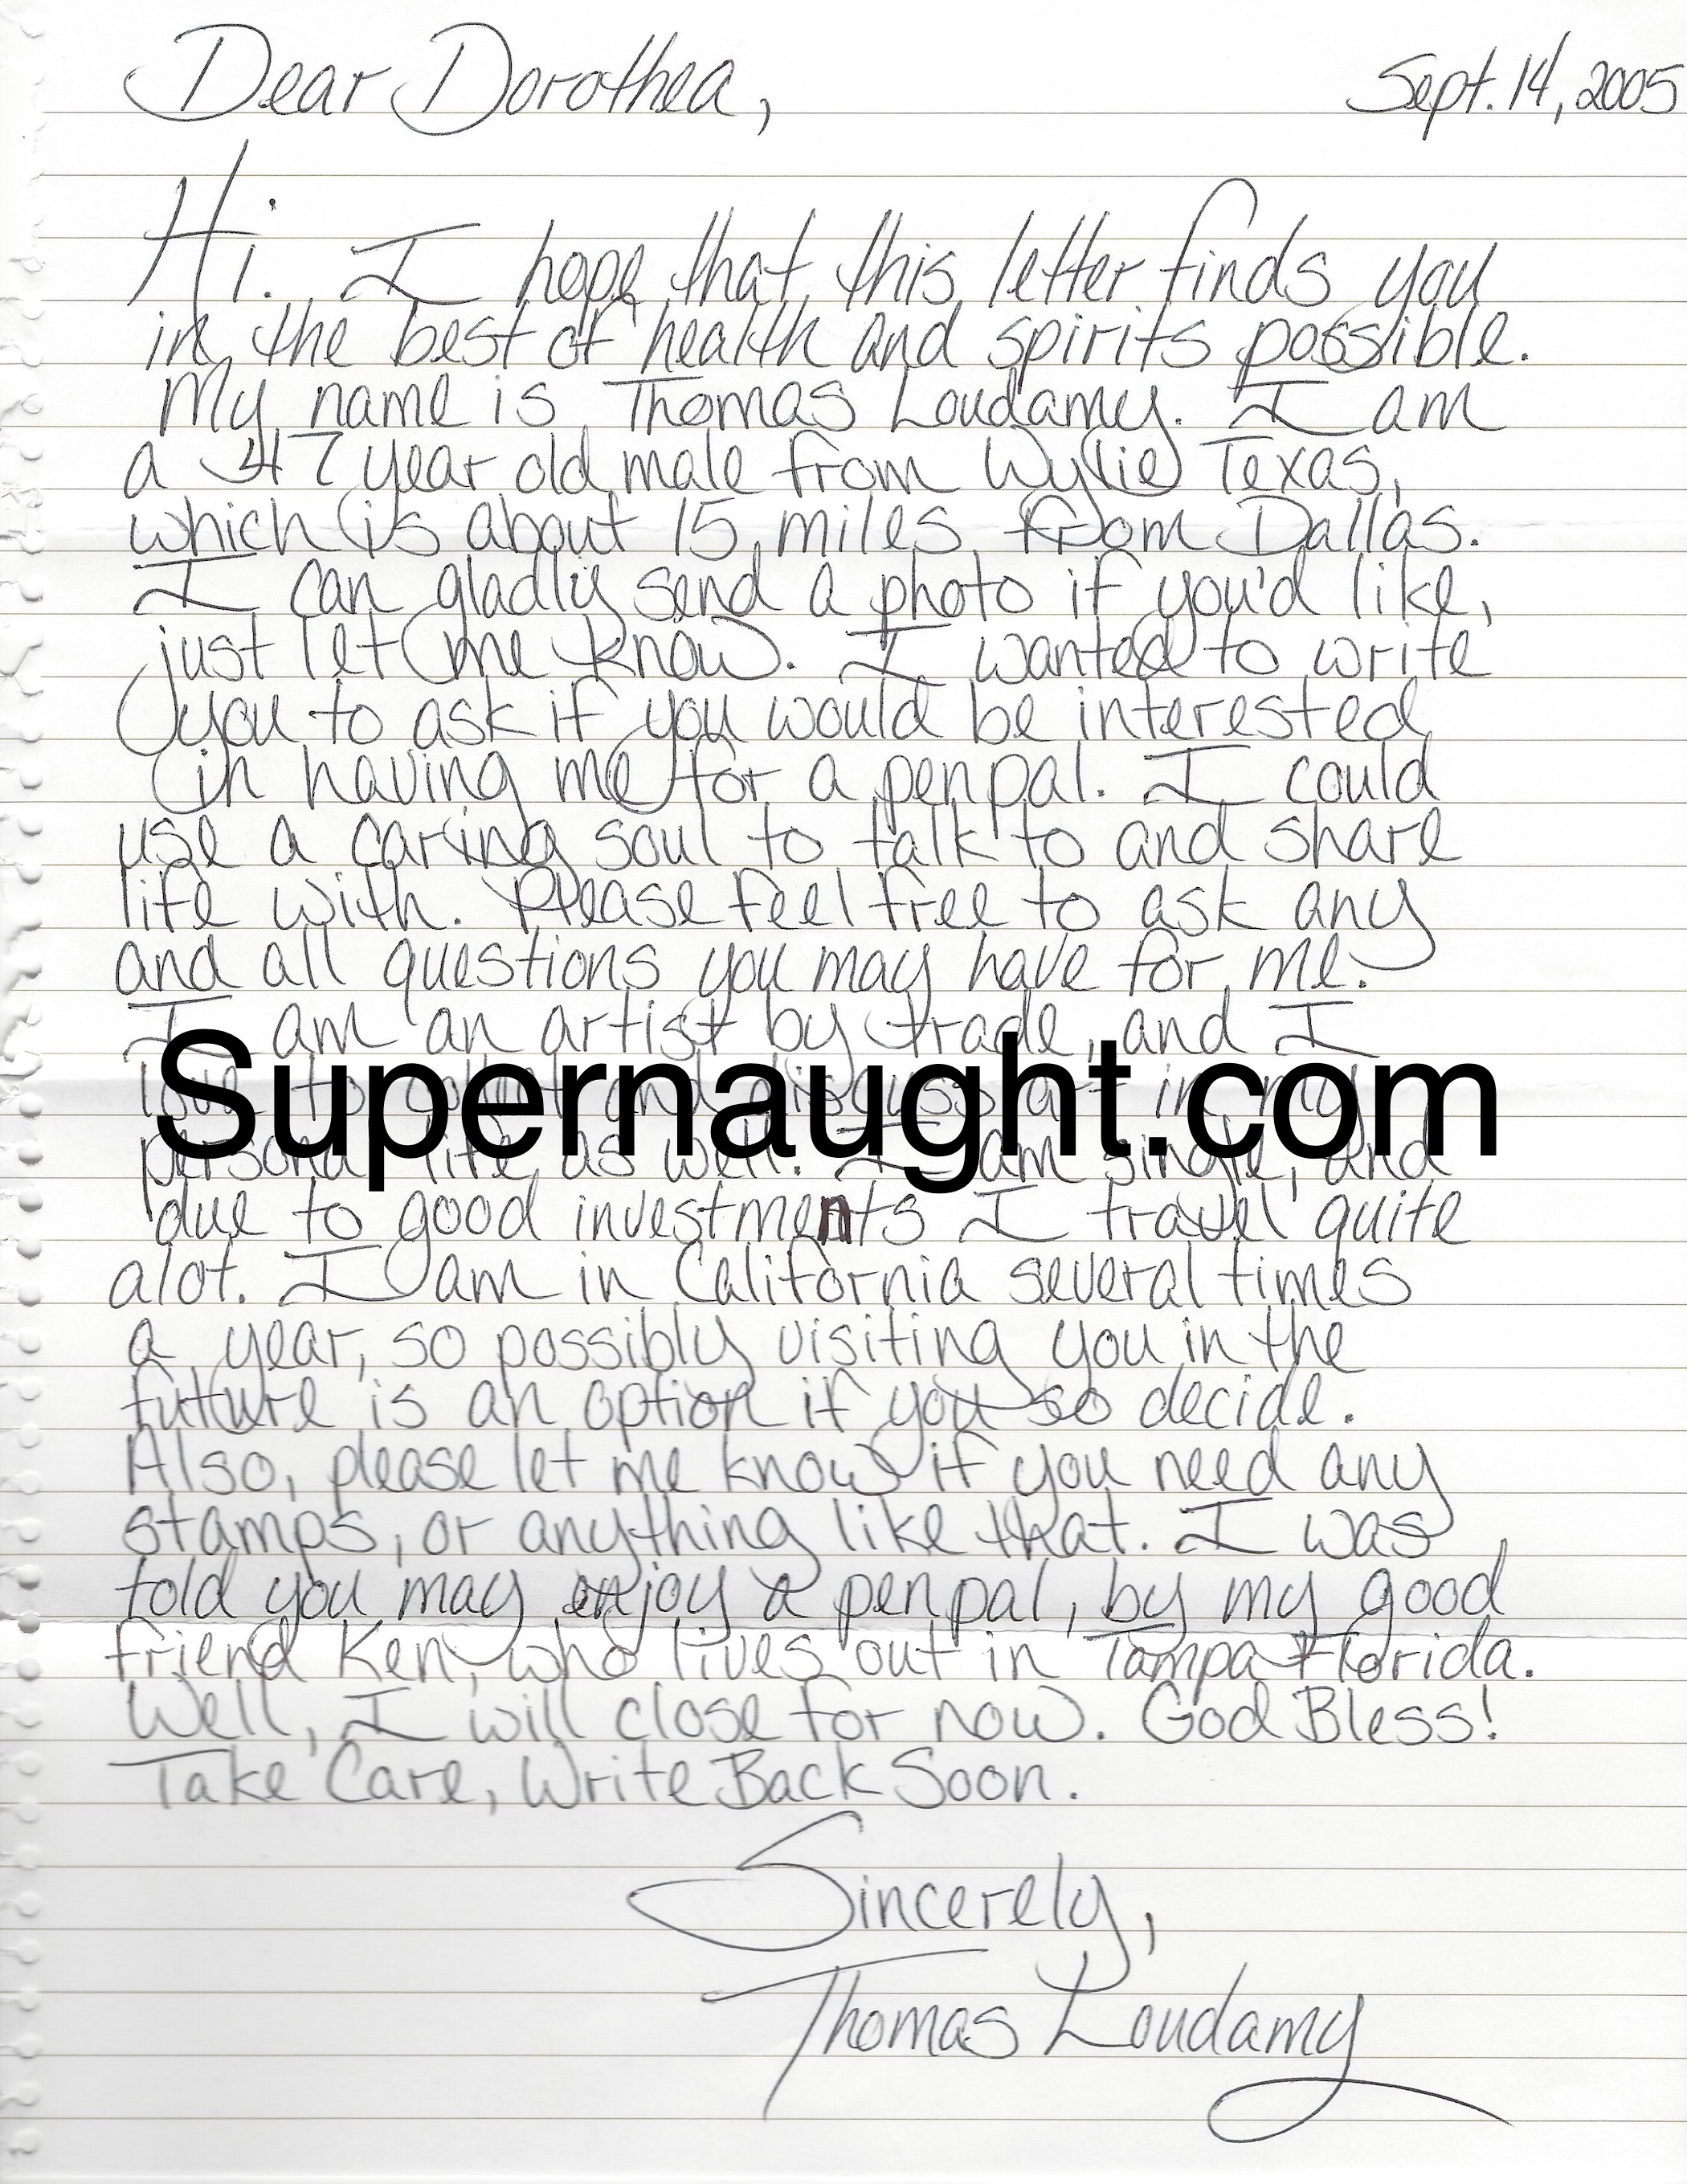 Dear Dorothea,
Sept. 14, 2005
Hi. I hope that this letter finds you
in the best of health and spirits possible.
My name is Thomas Loudamy. I am
a 47 year old male from Wylie Texas,
which is about 15 miles from Dallas.
I can gladly send a photo if you'd like,
just let me know. I wanted to write
you to ask if you would be interested
in having me for a penpal. I could
use a caring soul to talk to and share
life with. Please feel free to ask any
and all questions you may have for me.
I am an artist by trade, and I
love to and discuss art in my
Supernaught.com
personal life as well. I am single, and
due to good investments I travel quite
alot. I am in California several times
a year, so possibly visiting you in the
future is an option if you so decide.
Also, please let me know if you need any
stamps, or anything like that. I was
told you may enjoy a penpal, by my good
friend Ken, who lives out in Tampa Florida.
Well, I will close for now. God Bless!
Take Care, Write Back Soon.
Sincerely,
Thomas Loudamy